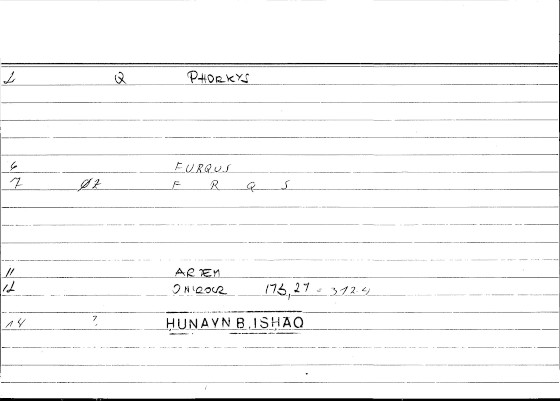 1 Q PHORKYS
6 FURQUS
7 Ø2 F R Q S
11 ARTEM
12 ONIROCR 175,27 = 312.4
14 ? HUNAYN B. ISHAQ